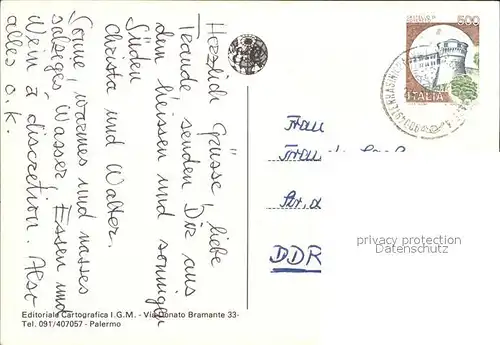 Herzlich Grüsse, liebe
Traude senden Dir aus
dem heissen und sonnigen
Süden
Christa und Walter.
Sonne, warmes und nasses
salziges Wasser, Essen und
Wein à discretion. Also
alles o.k.
Editoriale Cartografica I.G.M. - Via Donato Bramante 33-
Tel. 091/407057 - Palermo
500
ITALIA
Frau
DDR
privacy protection